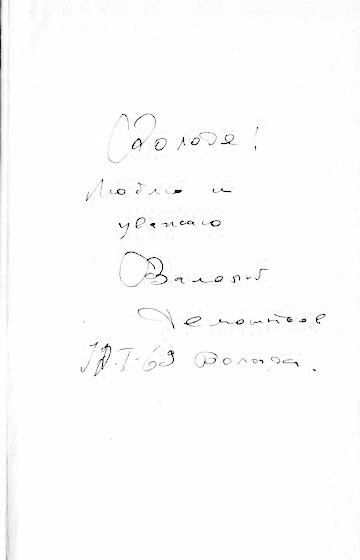 Володя!
Люблю и
уважаю
Валерий
Дементьев
I-69 Вологда.